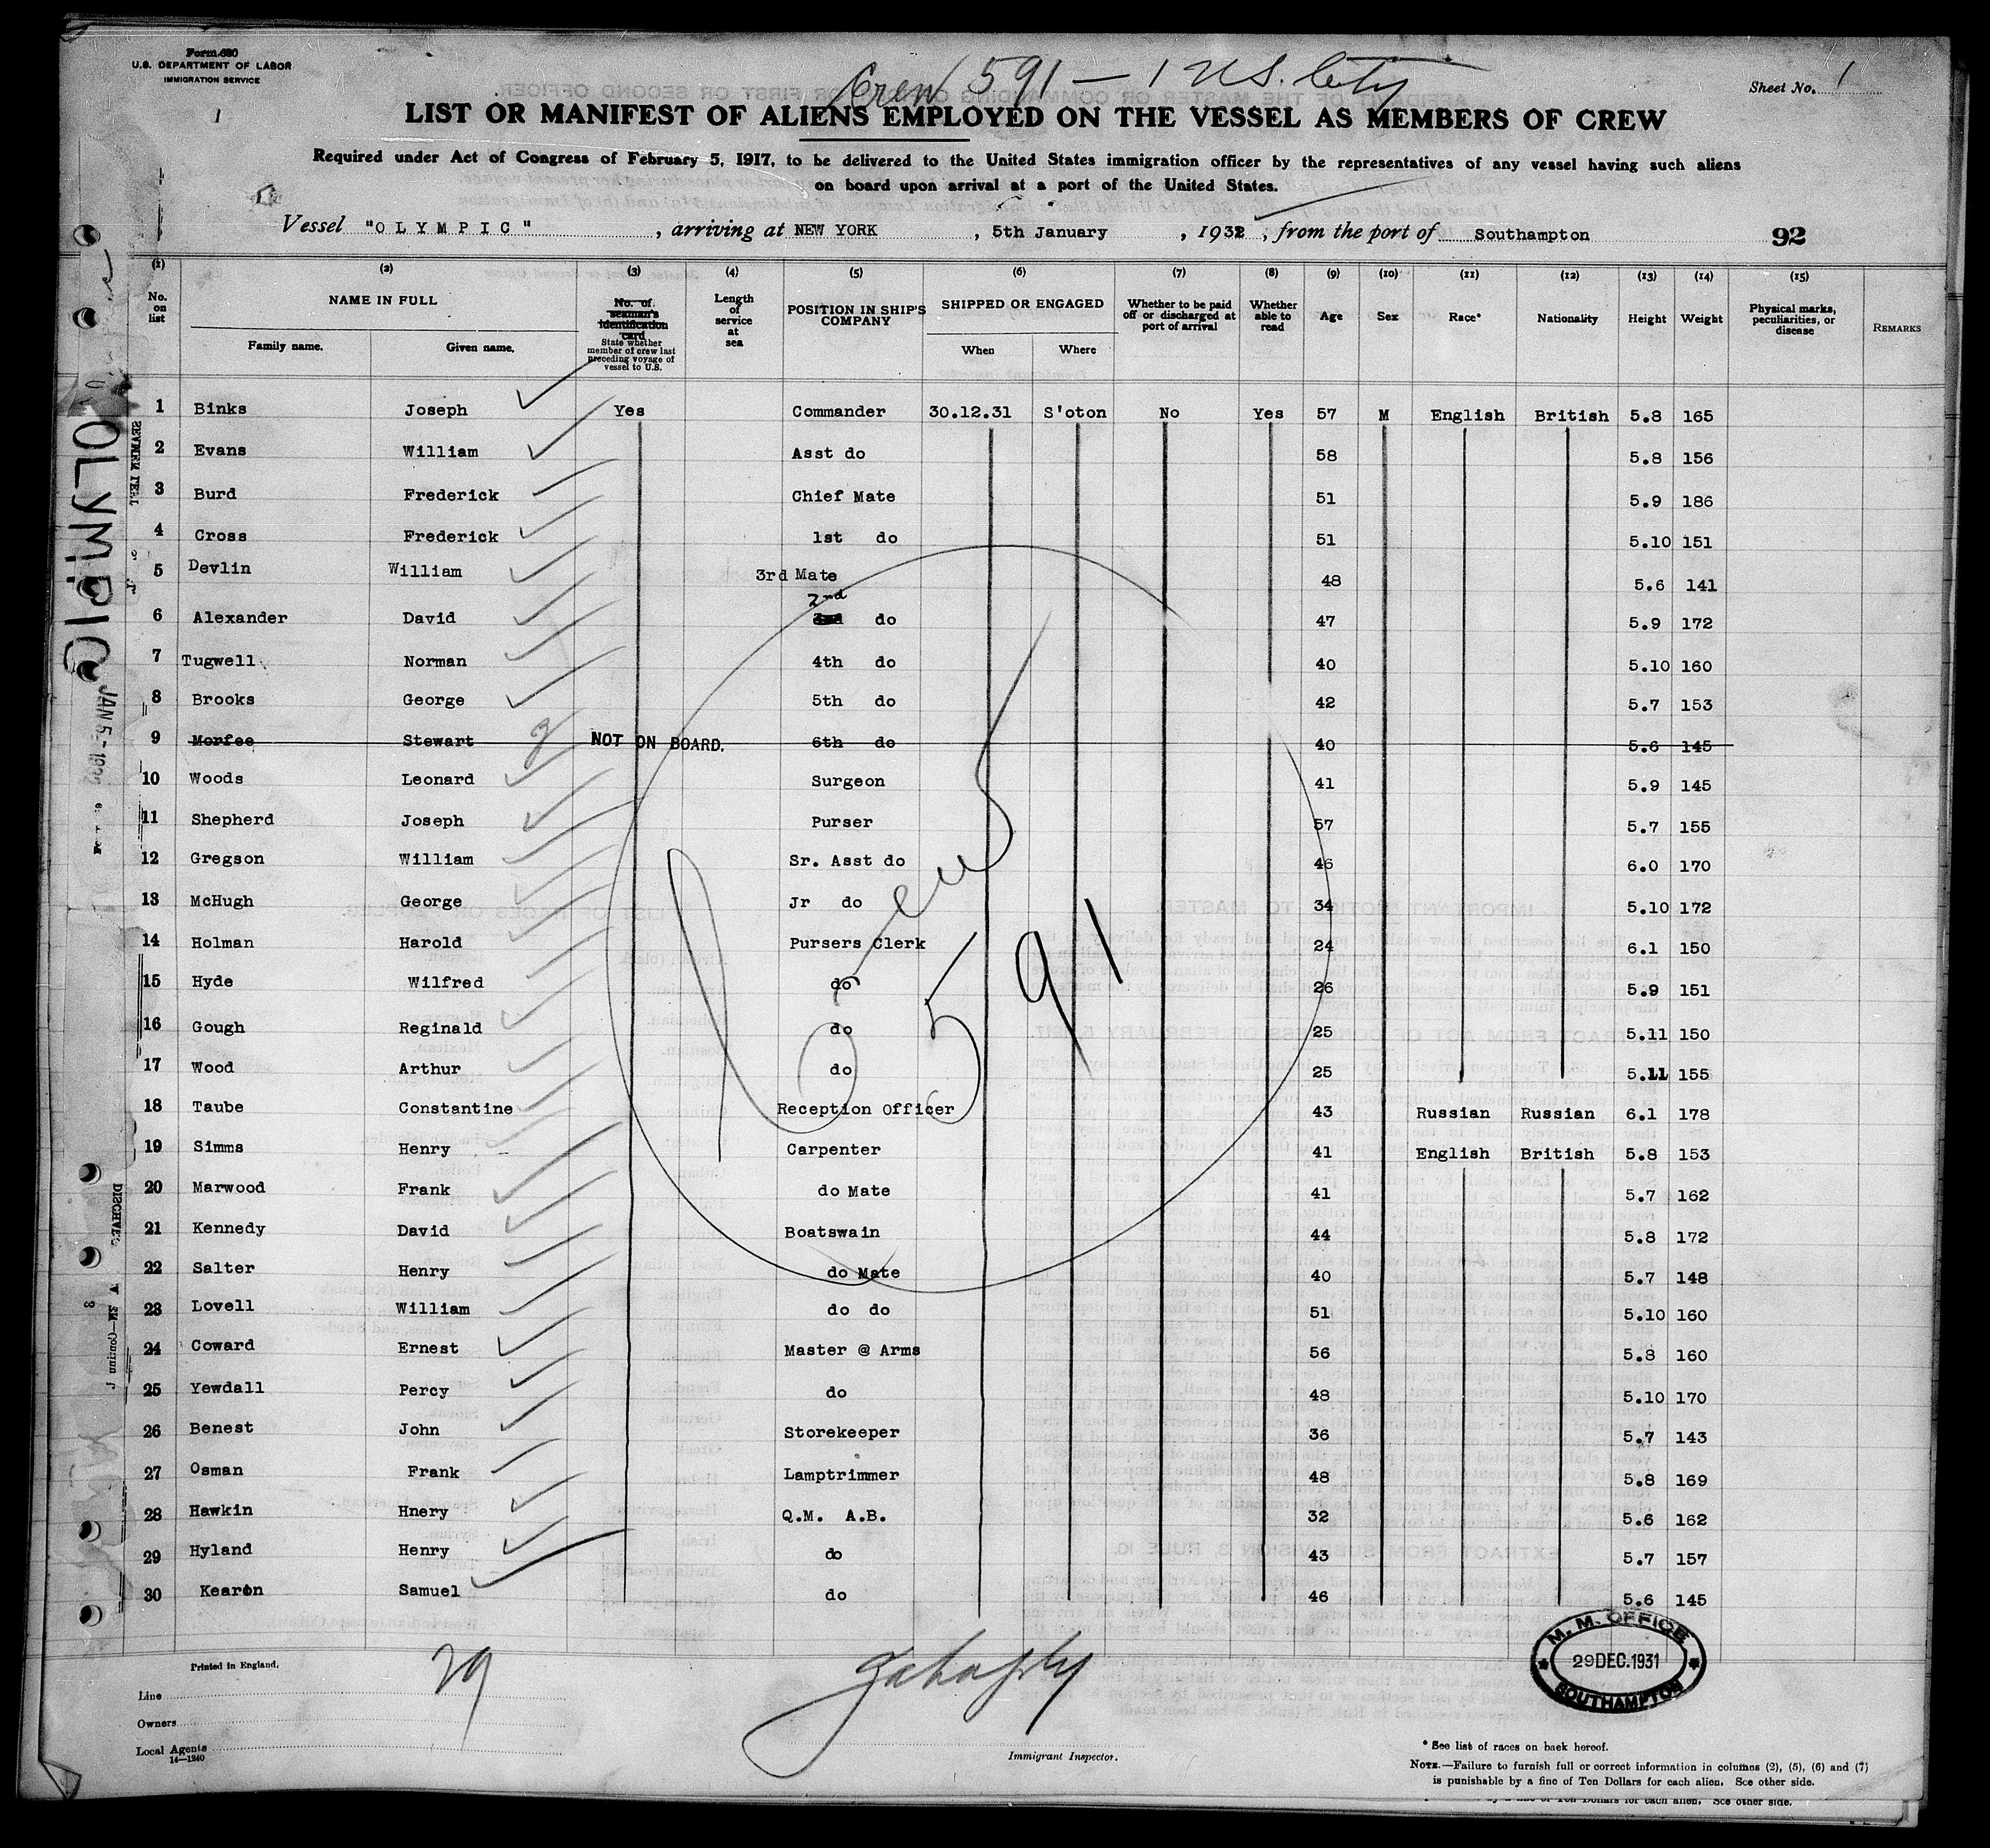 Form 680
U.S. DEPARTMENT OF LABOR
IMMIGRATION SERVICE
1
Crew 591 — 1 U.S. City
Sheet No. 1
LIST OR MANIFEST OF ALIENS EMPLOYED ON THE VESSEL AS MEMBERS OF CREW
Required under Act of Congress of February 5, 1917, to be delivered to the United States immigration officer by the representatives of any vessel having such aliens
on board upon arrival at a port of the United States.
Vessel "OLYMPIC", arriving at NEW YORK, 5th January, 1932, from the port of Southampton 92
(1) (2) (3) (4) (5) (6) (7) (8) (9) (10) (11) (12) (13) (14) (15)
No. on list NAME IN FULL Family name. Given name. No. of seaman's identification card State whether member of crew last preceding voyage of vessel to U.S. Length of service at sea POSITION IN SHIP'S COMPANY SHIPPED OR ENGAGED When Where Whether to be paid off or discharged at port of arrival Whether able to read Age Sex Race* Nationality Height Weight Physical marks, peculiarities, or disease REMARKS
1 Binks Joseph Yes Commander 30.12.31 S'oton No Yes 57 M English British 5.8 165
2 Evans William Asst do 58 5.8 156
3 Burd Frederick Chief Mate 51 5.9 186
4 Cross Frederick 1st do 51 5.10 151
5 Devlin William 3rd Mate 48 5.6 141
6 Alexander David 2nd do 47 5.9 172
7 Tugwell Norman 4th do 40 5.10 160
8 Brooks George 5th do 42 5.7 153
9 Morfee Stewart NOT ON BOARD. 6th do 40 5.6 145
10 Woods Leonard Surgeon 41 5.9 145
11 Shepherd Joseph Purser 57 5.7 155
12 Gregson William Sr. Asst do 46 6.0 170
13 McHugh George Jr do 34 5.10 172
14 Holman Harold Pursers Clerk 24 6.1 150
15 Hyde Wilfred do 26 5.9 151
16 Gough Reginald do 25 5.11 150
17 Wood Arthur do 25 5.11 155
18 Taube Constantine Reception Officer 43 Russian Russian 6.1 178
19 Simms Henry Carpenter 41 English British 5.8 153
20 Marwood Frank do Mate 41 5.7 162
21 Kennedy David Boatswain 44 5.8 172
22 Salter Henry do Mate 40 5.7 148
23 Lovell William do do 51 5.10 160
24 Coward Ernest Master @ Arms 56 5.8 160
25 Yewdall Percy do 48 5.10 170
26 Benest John Storekeeper 36 5.7 143
27 Osman Frank Lamptrimmer 48 5.8 169
28 Hawkin Hnery Q.M. A.B. 32 5.6 162
29 Hyland Henry do 43 5.7 157
30 Kearon Samuel do 46 5.6 145
Crew
591
OLYMPIC
JAN 5 - 1932
Printed in England.
29
M. M. OFFICE
29 DEC. 1931
SOUTHAMPTON
Line
Owners
Local Agents
14—1240
Immigrant Inspector.
* See list of races on back hereof.
NOTE.—Failure to furnish full or correct information in columns (2), (5), (6) and (7)
is punishable by a fine of Ten Dollars for each alien. See other side.
by a fine of Ten Dollars for each alien. See other side.